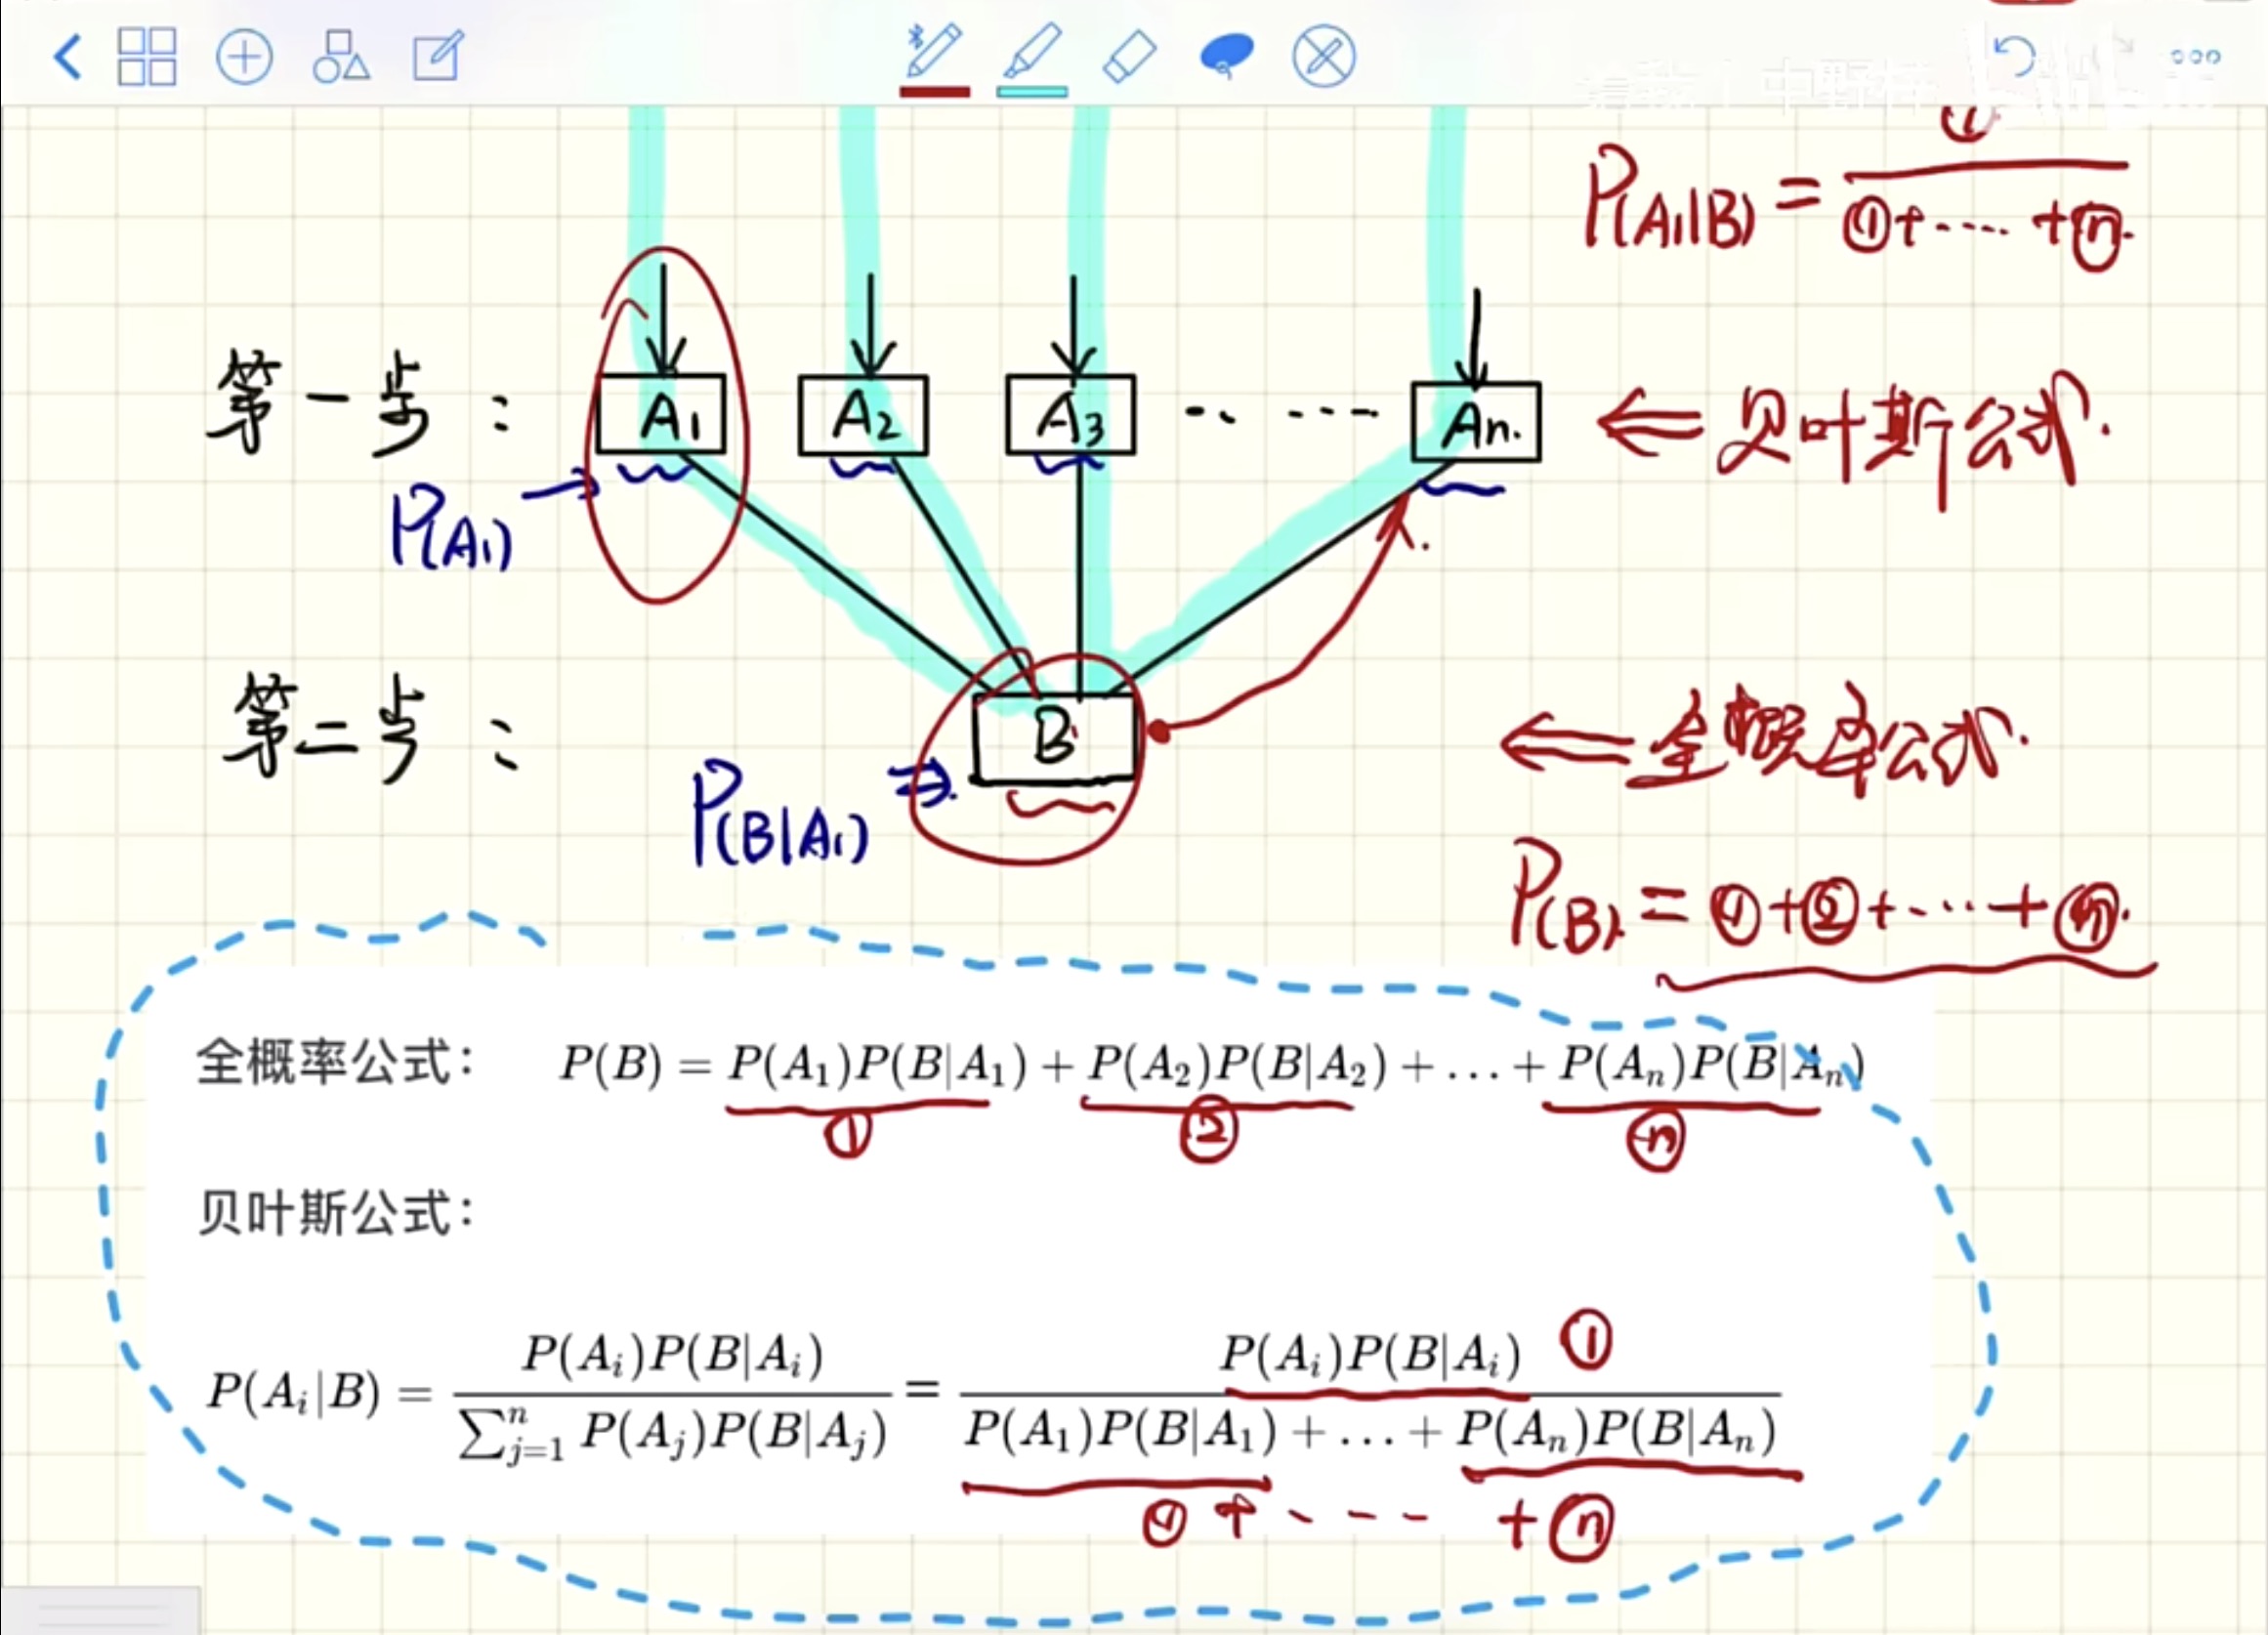 ①
P(A₁|B) = ①+‑‑‑‑+ⓝ.
第一步： A₁ A₂ A₃ ‑‑‑‑‑ An. ⇐ 贝叶斯公式.
P(A₁) →
第二步： B ⇐ 全概率公式.
P(B|A₁) ⇒
P(B) = ①+②+‑‑‑+ⓝ.
全概率公式： P(B) = P(A₁)P(B|A₁) + P(A₂)P(B|A₂) + … + P(Aₙ)P(B|Aₙ)
① ② ⓝ
贝叶斯公式：
P(Aᵢ)P(B|Aᵢ) P(Aᵢ)P(B|Aᵢ) ①
P(Aᵢ|B) = =
∑ⁿⱼ₌₁ P(Aⱼ)P(B|Aⱼ) P(A₁)P(B|A₁) + … + P(Aₙ)P(B|Aₙ)
① + ‑‑‑ + ⓝ